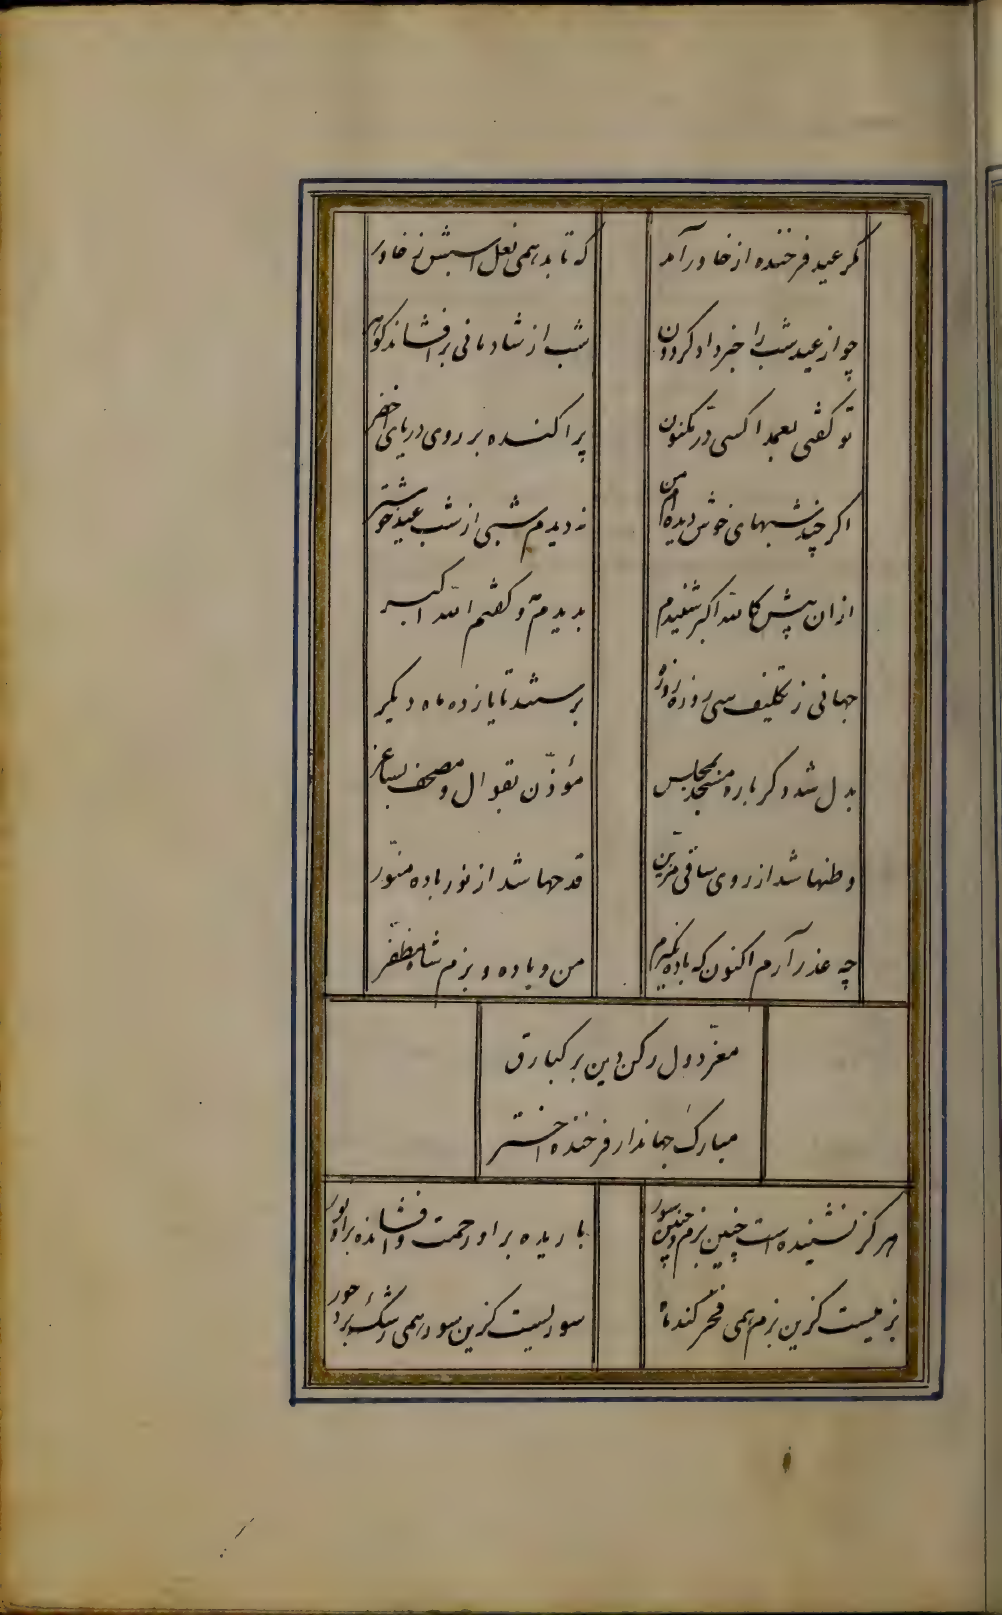 مکر عید فرخنده از خاور آمد
که تابد همی نعل اسبش ز خاور
چو از عید شب را خبر داد کردون
شب از شادمانی برافشاند کوهر
تو کفتی بعمدا کسی در مکنون
پراکنده بر روی دریای اخضر
اکر چند شبهای خوش دیده‌ام من
ندیدم شبی از شب عید خوشتر
از ان پیش کالله اکبر شنیدم
بدیدم و کفتم الله اکبر
جهانی ز تکلیف سی روزه روزه
برستند تا یازده ماه دیکر
بدل شد دکر باره مسجد بمجلس
مؤذّن بقوال و مصحف بساغر
وطنها شد از روی ساقی مزیّن
قدحها شد از نور باده منوّر
چه عذر آرم اکنون که باده نکیرم
من و باده و بزم شاه مظفّر
معزّ دول رکن دین برکیارق
مبارک جهاندار فرخنده اختر
هرکز نشنیده است چنین بزم و چنین سور
باریده بر او رحمت و افشانده بر او نور
بزمیست کزین بزم همی فخر کند ماه
سوریست کزین سور همی رشک برد حور